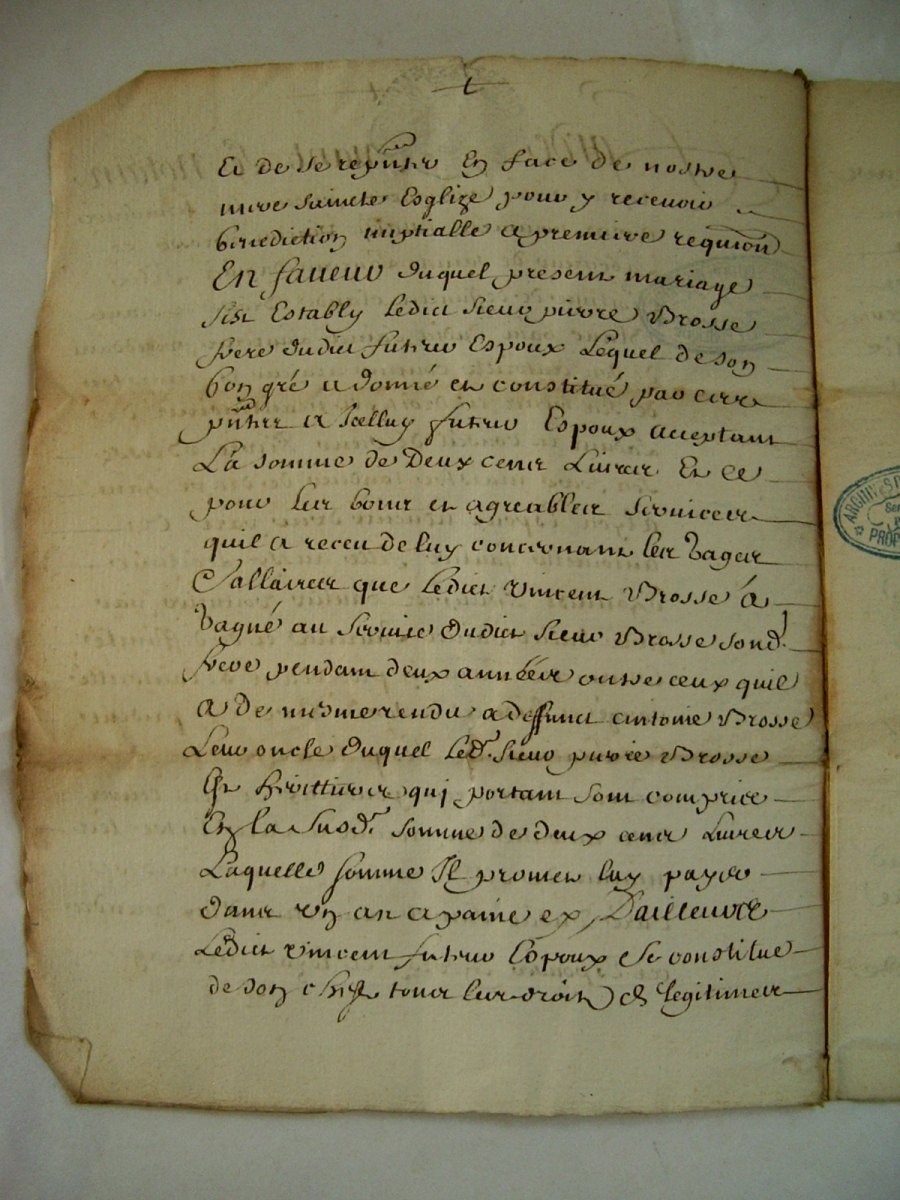 Et de se reptnter En face de nostre
mere saincte Esglize pour y recevoir
benediction nuptialle a premiere requi^on
En faveur duquel present mariage
s'est Estably Ledict sieur pierre Brosse
frere dudict futeur Espoux Lequel de son
bon gré a donné et constitué par ces
pntes a Icelluy futeur Espoux acceptant
La somme de Deux cents Livres Et ce
pour les bons et agreables services
quil a receu de luy concernant les gages
Sallaires que Ledict vincent Brosse á
gagné au service dudict sieur Brosse sond.
frere pendant deux années outre ceux quil
a de mesme rendu a deffunct antoine Brosse
Leur oncle duquel Led. sieur pierre Brosse
Est herittier qui portant sont comprises
En la susd. somme de deux cents Livres
Laquelle somme Il promet luy payer
dans un an a paine ex Dailleurs
Ledict vincent futeur Espoux se constitue
de son chef tous les droits et Legitimes
ARCHIVES